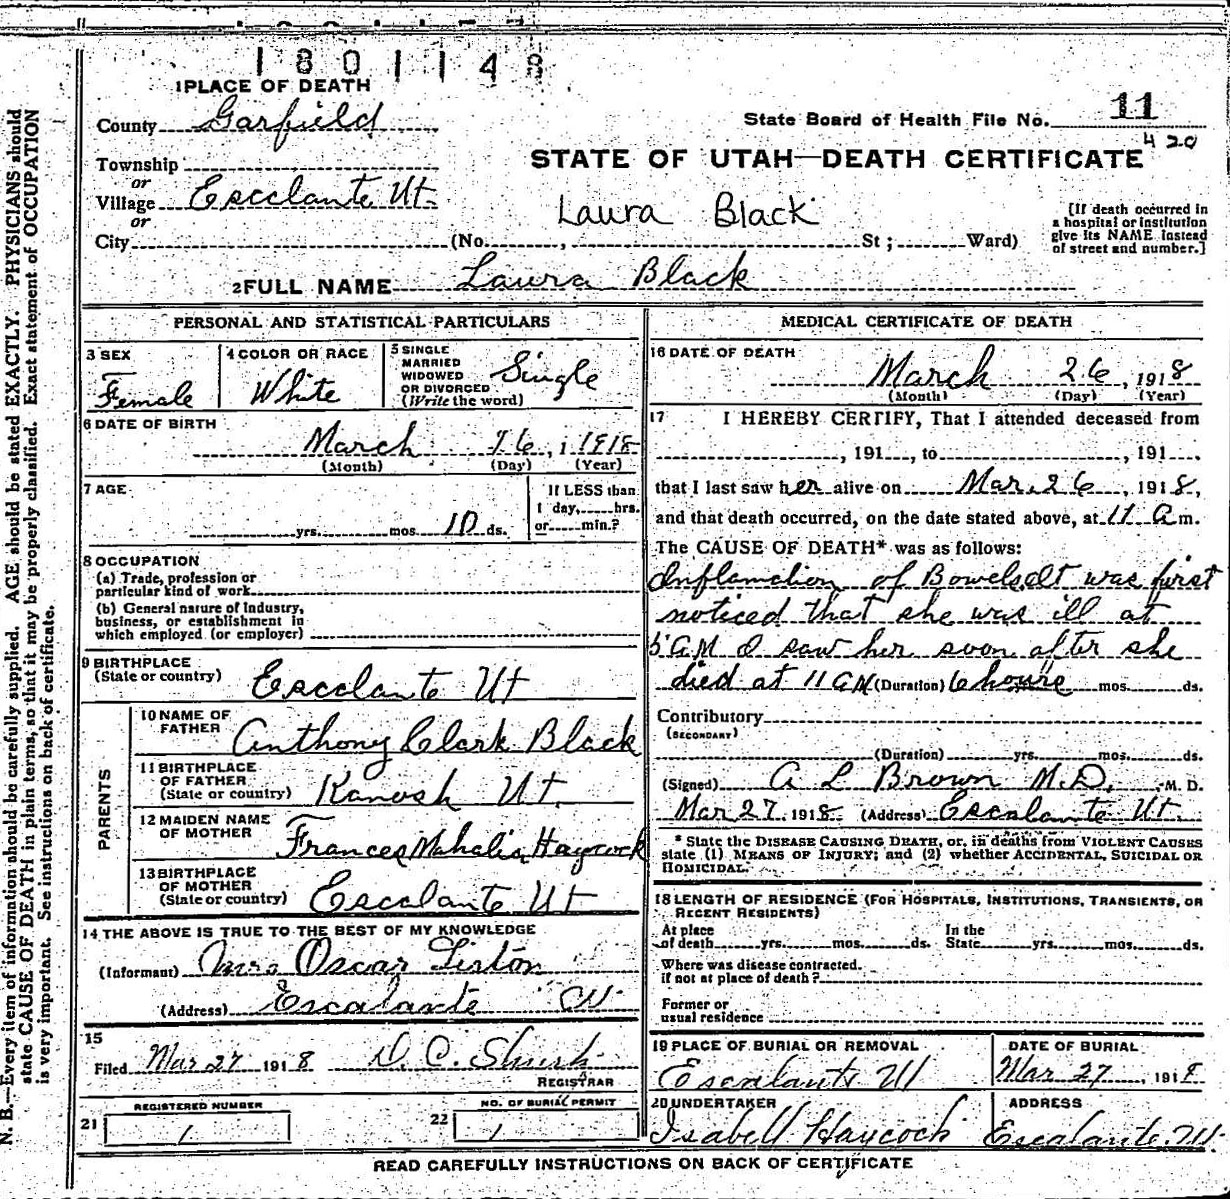 1801148
1 PLACE OF DEATH
County Garfield
State Board of Health File No. 11
420
Township
or
STATE OF UTAH—DEATH CERTIFICATE
Village Escclante Ut.
or
Laura Black
City (No. , St ; Ward)
[If death occurred in
a hospital or institution
give its NAME instead
of street and number.]
2 FULL NAME Laura Black
PERSONAL AND STATISTICAL PARTICULARS
3 SEX
Female
4 COLOR OR RACE
White
5 SINGLE
MARRIED
WIDOWED
OR DIVORCED
(Write the word)
Single
6 DATE OF BIRTH
March 16, 1 1918
(Month) (Day) (Year)
7 AGE
yrs. mos. 10 ds.
If LESS than
1 day, hrs.
or min.?
8 OCCUPATION
(a) Trade, profession or
particular kind of work
(b) General nature of industry,
business, or establishment in
which employed (or employer)
9 BIRTHPLACE
(State or country) Escclante Ut
PARENTS
10 NAME OF
FATHER Anthony Clark Black
11 BIRTHPLACE
OF FATHER
(State or country) Kanosh Ut.
12 MAIDEN NAME
OF MOTHER Frances Mahalia Haycock
13 BIRTHPLACE
OF MOTHER
(State or country) Escalante Ut
14 THE ABOVE IS TRUE TO THE BEST OF MY KNOWLEDGE
(Informant) Mrs Oscar Liston
(Address) Escalante Ut.
15
Filed Mar 27 1918 D. C. Shurtz
REGISTRAR
REGISTERED NUMBER
21 1
NO. OF BURIAL PERMIT
22 1
MEDICAL CERTIFICATE OF DEATH
16 DATE OF DEATH
March 26, 1918
(Month) (Day) (Year)
17 I HEREBY CERTIFY, That I attended deceased from
, 191 , to , 191 .
that I last saw her alive on Mar. 26, 1918,
and that death occurred, on the date stated above, at 11 a m.
The CAUSE OF DEATH* was as follows:
Inflamation of Bowels It was first
noticed that she was ill at
5 AM I saw her soon after she
died at 11 AM (Duration) 6 hours mos. ds.
Contributory
(SECONDARY)
(Duration) yrs. mos. ds.
(Signed) A L Brown M.D. M. D.
Mar 27 1918 (Address) Escalante Ut.
* State the DISEASE CAUSING DEATH, or, in deaths from VIOLENT CAUSES
state (1) MEANS OF INJURY; and (2) whether ACCIDENTAL, SUICIDAL OR
HOMICIDAL.
18 LENGTH OF RESIDENCE (FOR HOSPITALS, INSTITUTIONS, TRANSIENTS, OR
RECENT RESIDENTS)
At place
of death yrs. mos. ds. In the
State yrs. mos. ds.
Where was disease contracted
if not at place of death?
Former or
usual residence
19 PLACE OF BURIAL OR REMOVAL
Escalante Ut
DATE OF BURIAL
Mar 27, 1918
20 UNDERTAKER
Isabell Haycock
ADDRESS
Escalante. Ut.
READ CAREFULLY INSTRUCTIONS ON BACK OF CERTIFICATE
N. B.—Every item of information should be carefully supplied. AGE should be stated EXACTLY. PHYSICIANS should
state CAUSE OF DEATH in plain terms, so that it may be properly classified. Exact statement of OCCUPATION
is very important. See instructions on back of certificate.